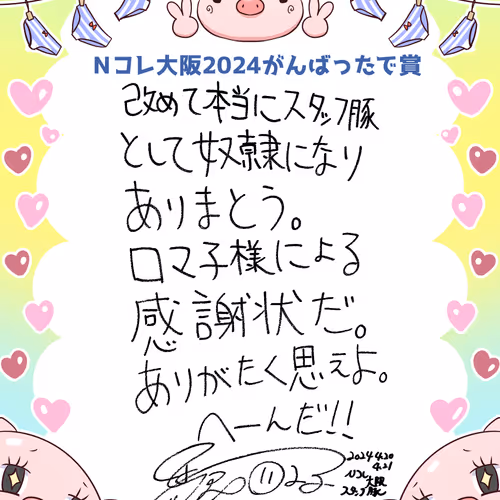 Nコレ大阪2024がんばったで賞
改めて本当にスタッフ豚
として奴隷になり
ありまとう。
ロマ子様による
感謝状だ。
ありがたく思えよ。
へーんだ!!
2024 4.20
4.21
Nコレ
大阪
スタッフ豚